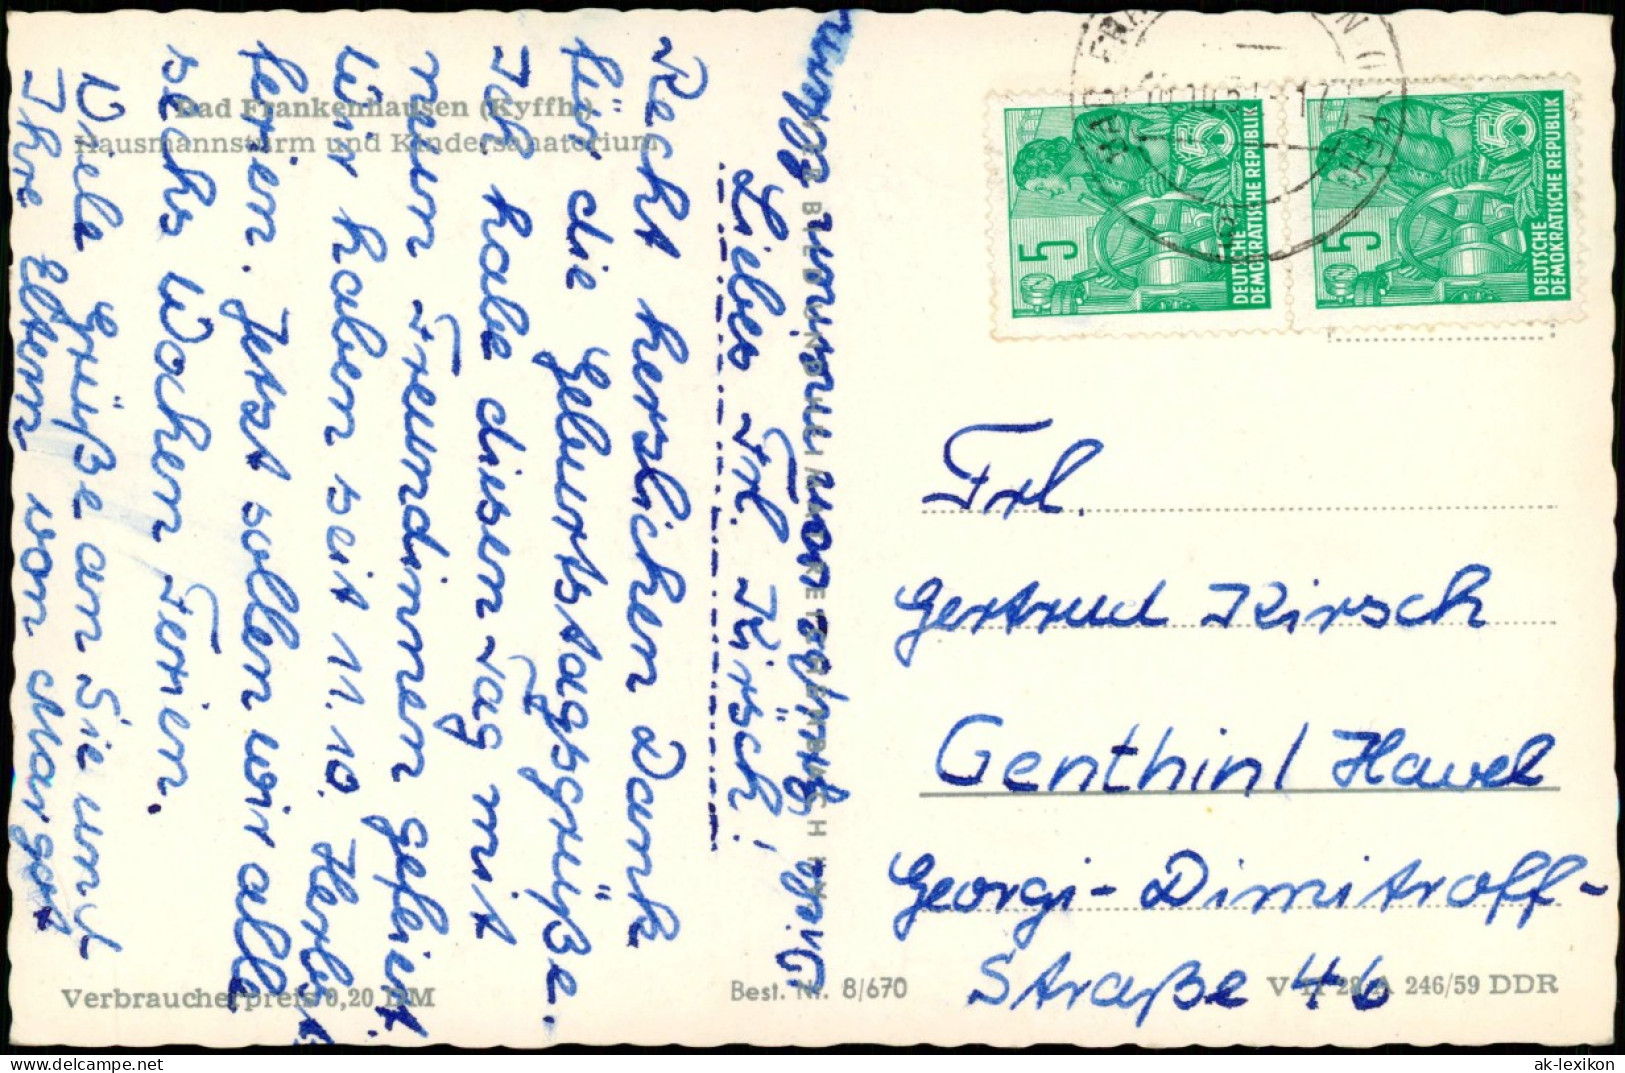 Bad Frankenhausen (Kyffh.)
Hausmannsturm und Kindersanatorium
Liebes Frl. Kirsch!
Recht herzlichen Dank
für die Geburtstagsgrüße.
Ich habe diesen Tag mit
neun Freundinnen gefeiert.
Wir haben seit 11.10. Herbst
ferien. Jetzt sollen wir alle
sechs Wochen Ferien.
Viele Grüße an Sie und
Ihre Eltern von Margot
DEUTSCHE
DEMOKRATISCHE REPUBLIK
5
DEUTSCHE
DEMOKRATISCHE REPUBLIK
5
Frl.
Gertrud Kirsch
Genthin/Havel
Georgi-Dimitroff-
Straße 46
Verbraucherpreis 0,20 DM
Best. Nr. 8/670
246/59 DDR
ak-lexikon